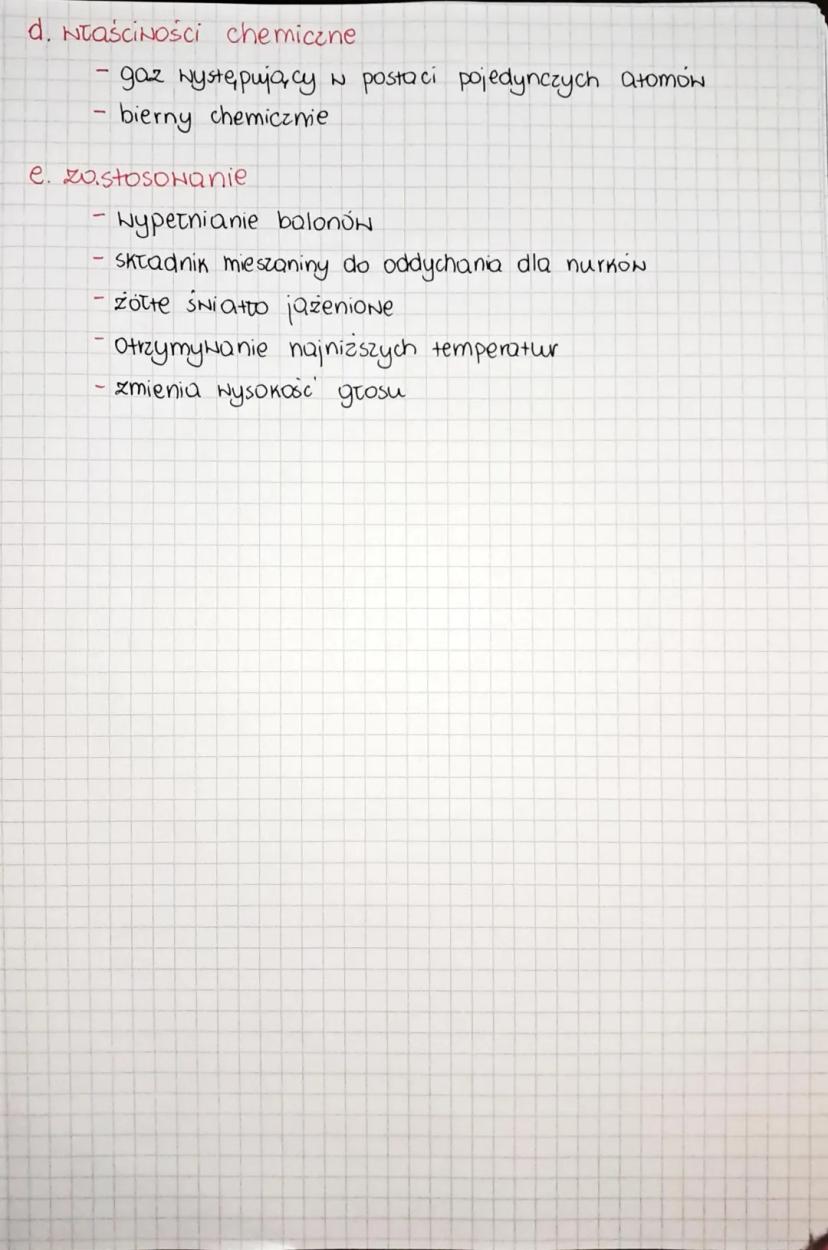 d. właściwości chemiczne
- gaz występujący w postaci pojedynczych atomów
- bierny chemicznie
e. zastosowanie
- wypełnianie balonów
- składnik mieszaniny do oddychania dla nurków
- żółte światło jażeniowe
- otrzymywanie najniższych temperatur
- zmienia wysokość głosu